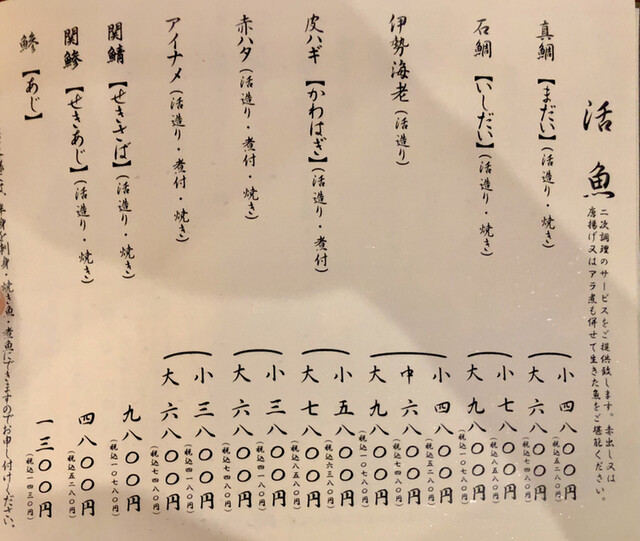 活魚
二次調理のサービスをご提供致します。赤出し又は
唐揚げ又はアラ煮も併せて生きた魚をご堪能ください。
真鯛【まだい】(活造り・焼き)
小 四八〇〇円
(税込五二八〇円)
大 六八〇〇円
(税込七四八〇円)
石鯛【いしだい】(活造り・焼き)
小 七八〇〇円
(税込八五八〇円)
大 九八〇〇円
(税込一〇七八〇円)
伊勢海老(活造り)
小 四八〇〇円
(税込五二八〇円)
中 六八〇〇円
(税込七四八〇円)
大 九八〇〇円
(税込一〇七八〇円)
皮ハギ【かわはぎ】(活造り・煮付)
小 五八〇〇円
(税込六三八〇円)
大 七八〇〇円
(税込八五八〇円)
赤ハタ(活造り・煮付・焼き)
小 三八〇〇円
(税込四一八〇円)
大 六八〇〇円
(税込七四八〇円)
アイナメ(活造り・煮付・焼き)
小 三八〇〇円
(税込四一八〇円)
大 六八〇〇円
(税込七四八〇円)
関鯖【せきさば】(活造り・焼き)
九八〇〇円
(税込一〇七八〇円)
関鯵【せきあじ】(活造り・焼き)
四八〇〇円
(税込五二八〇円)
鯵【あじ】
一三〇〇円
(税込一四三〇円)
刺身・焼き魚・煮魚にできますのでお申し付けください。